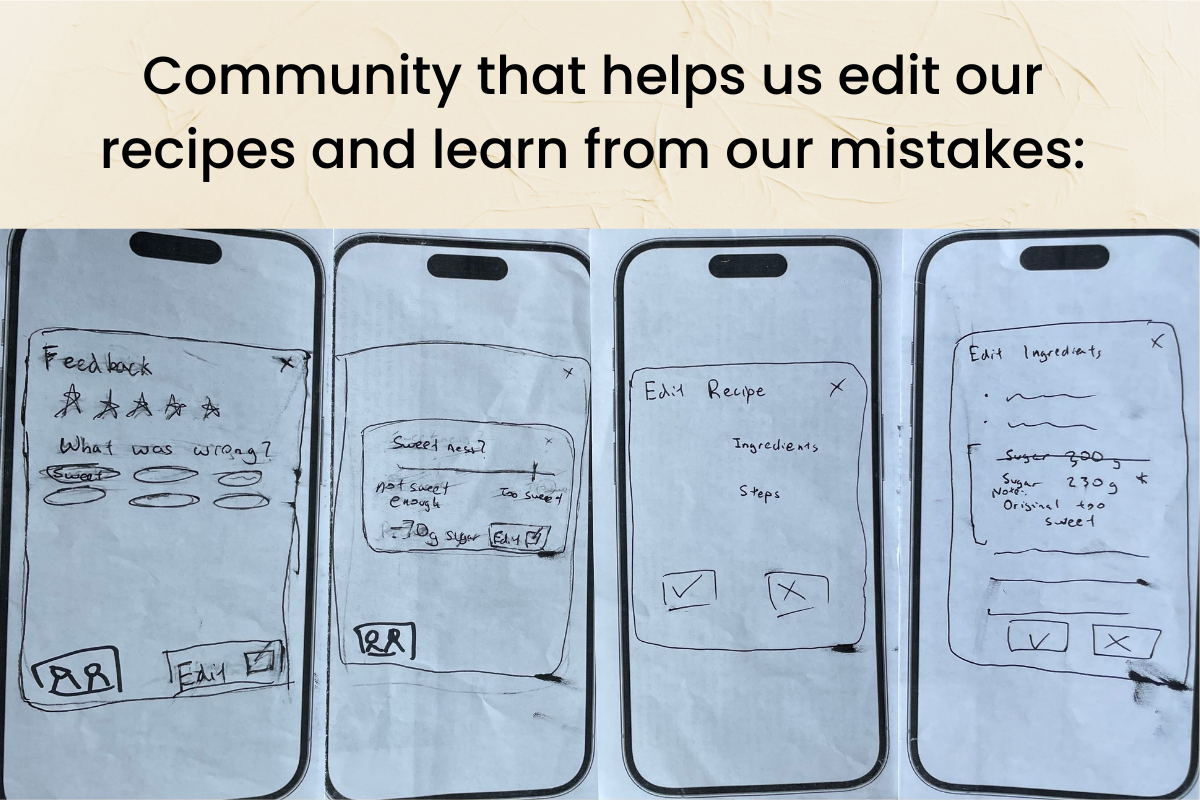 Community that helps us edit our
recipes and learn from our mistakes:
Feedback
What was wrong?
Sweet
Sweetness?
not sweet
enough
Too sweet
-70g sugar
Edit
Edit
Edit Recipe
Ingredients
Steps
Edit Ingredients
Sugar 300 g
Sugar 230g *
Note:
Original too
sweet